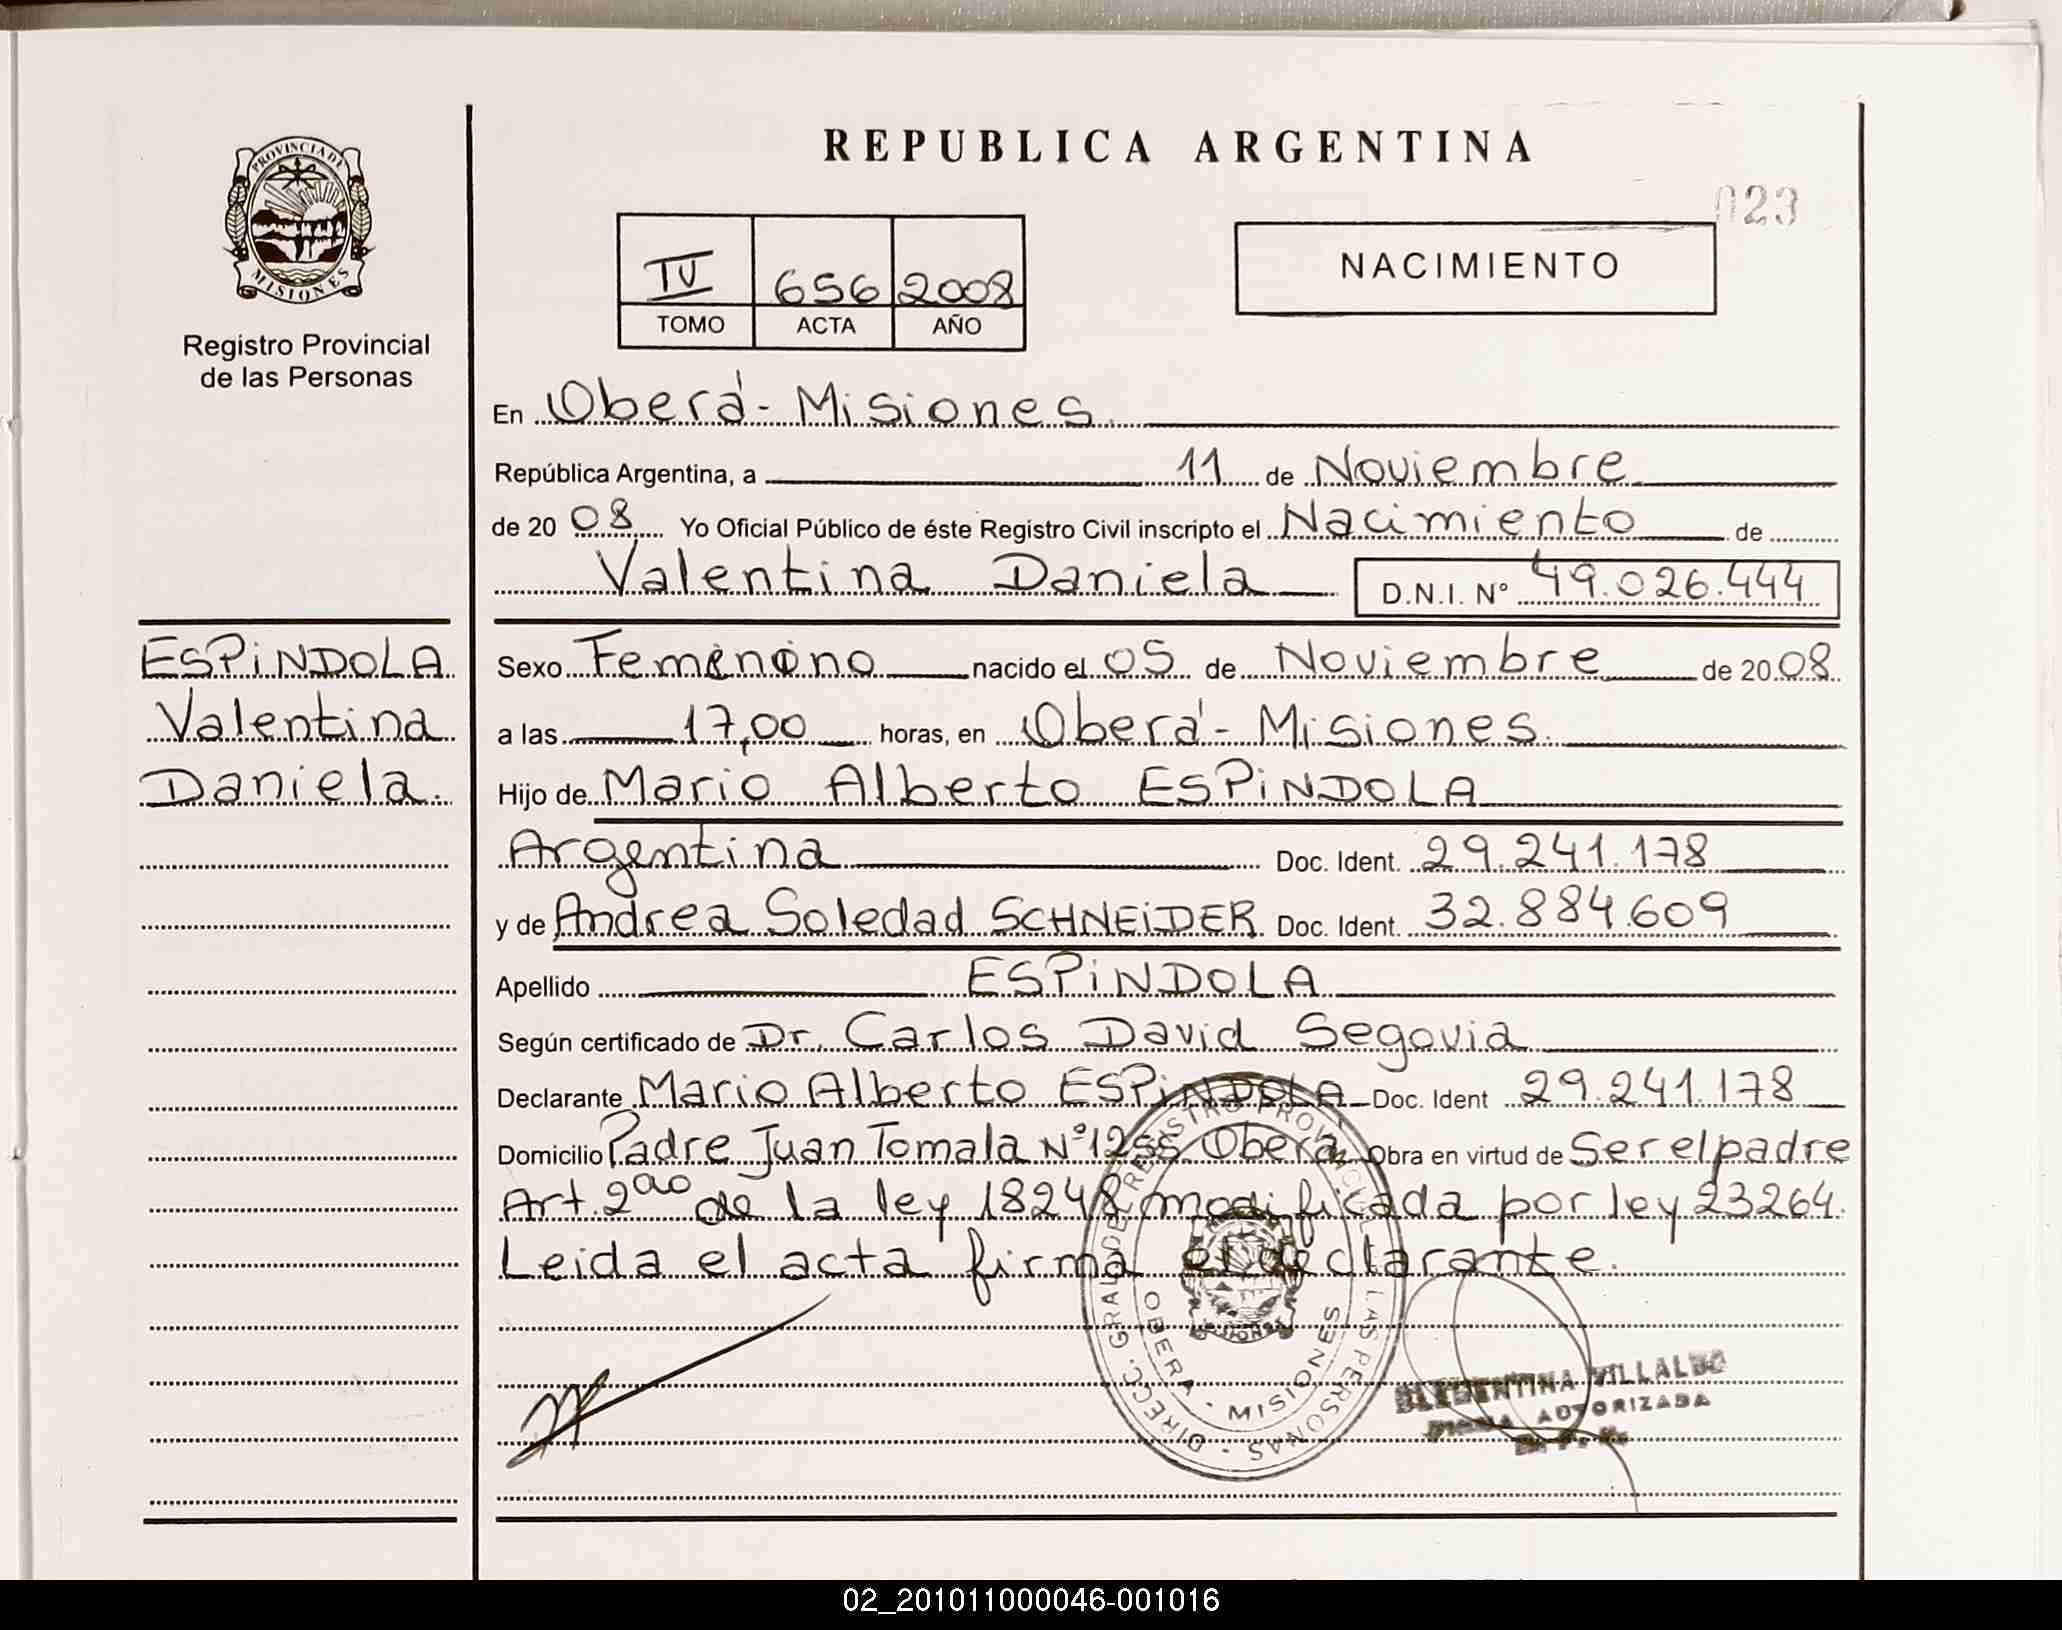 REPUBLICA ARGENTINA
023
PROVINCIA DE
MISIONES
Registro Provincial
de las Personas
IV 656 2008
TOMO ACTA AÑO
NACIMIENTO
En Oberá - Misiones
República Argentina, a 11 de Noviembre
de 20 08 Yo Oficial Público de éste Registro Civil inscripto el Nacimiento de
Valentina Daniela D.N.I. N° 49.026.444
ESPiNDOLA
Valentina
Daniela.
Sexo Femenino nacido el 05 de Noviembre de 20 08
a las 17,00 horas, en Oberá - Misiones.
Hijo de Mario Alberto ESPiNDOLA
Argentina Doc. Ident. 29.241.178
y de Andrea Soledad SCHNEiDER Doc. Ident. 32.884.609
Apellido ESPiNDOLA
Según certificado de Dr. Carlos David Segovia
Declarante Mario Alberto ESPiNDOLA Doc. Ident 29.241.178
Domicilio Padre Juan Tomala N° 1255 Oberá Obra en virtud de Ser el padre
Art. 2do de la ley 18248 modificada por ley 23264.
Leida el acta firma el declarante.
DIRECC. GRAL. DEL REGISTRO PROVINCIAL LAS PERSONAS
OBERA - MISIONES
VILLALBO
AUTORIZADA
02_201011000046-001016